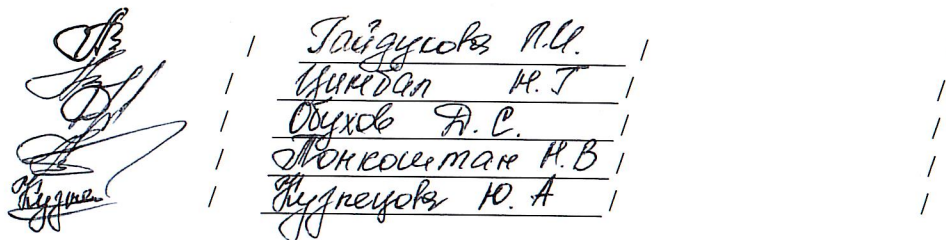 / Гайдукова Л.И. /
/ Цимбал Н.Г /
/ Обухов Д.С. /
/ Понкоштан Н.В /
Кузне / Кузнецова Ю.А /